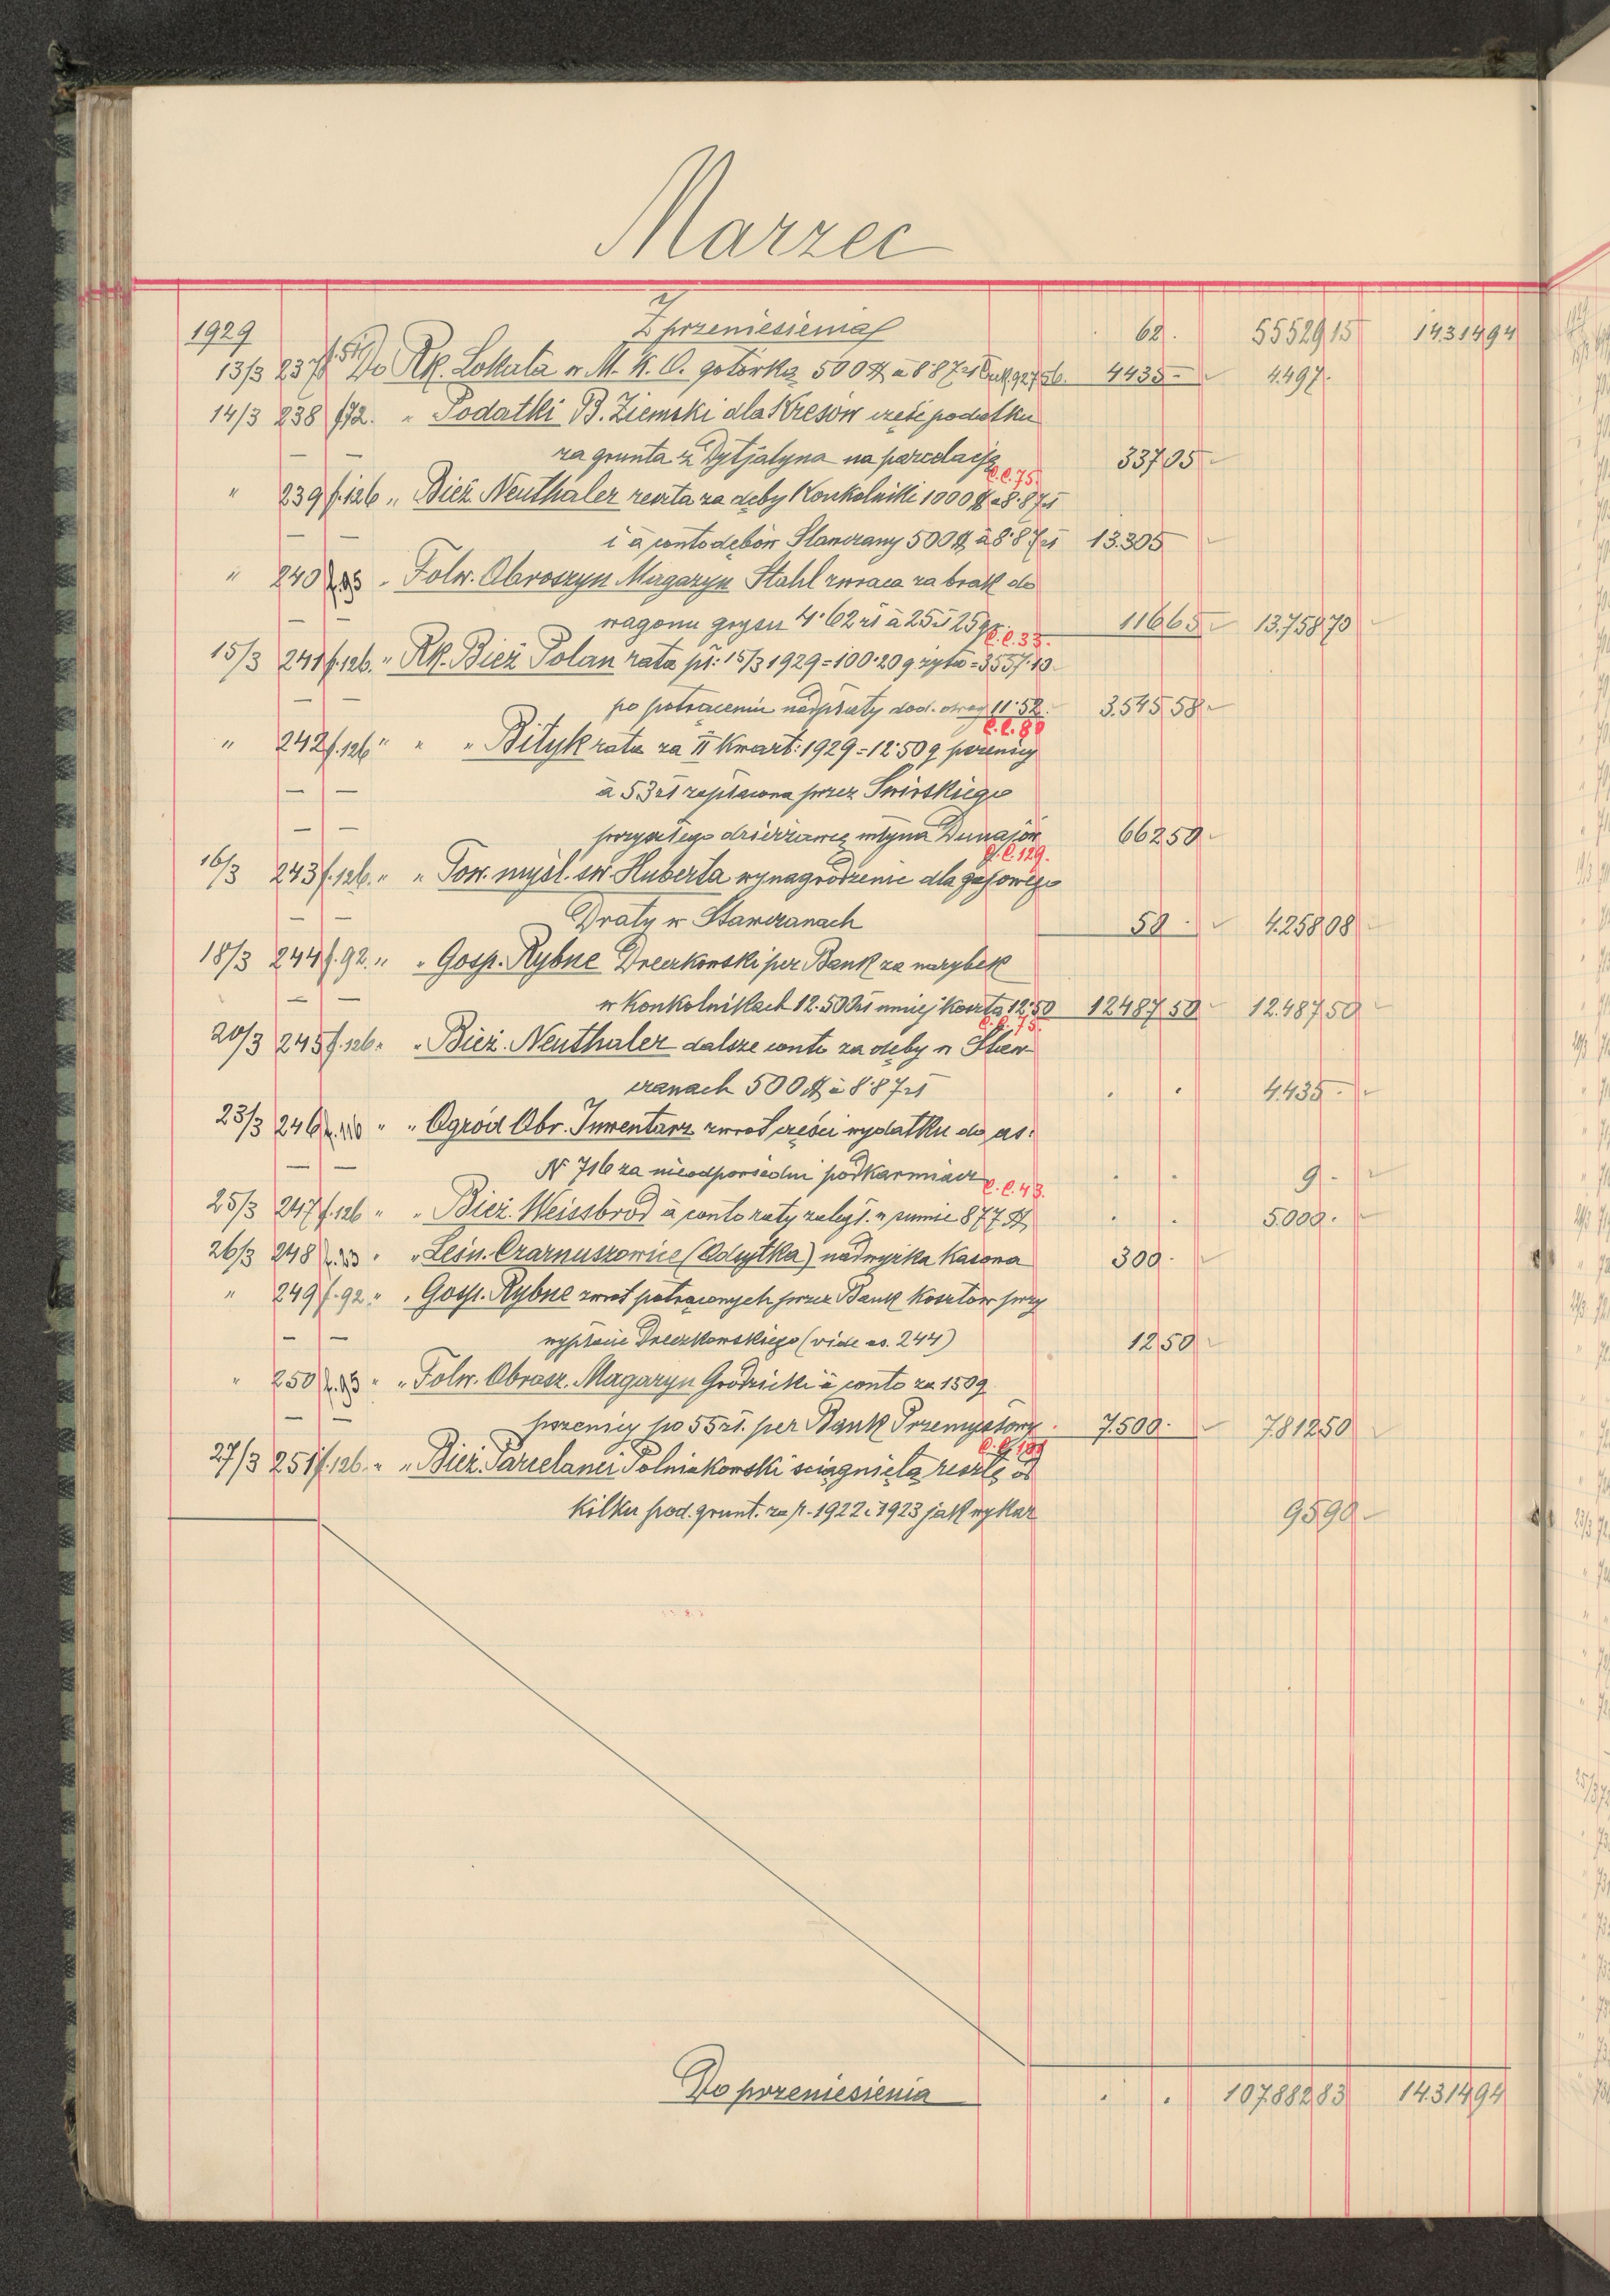 Marzec
1929 Z przeniesienia 62. 55529 15 14314 94
13/3 237 f. 51 Do Rk. Lokata w M. K. O. gotówką 500 $ à 8 87 zł 4435 - 4.497.
14/3 238 f 72. " Podatki B. Ziemski dla Kresów część podatku
— — za grunta z Dytjatyna na parcelację 337 05
C.C. 75.
" 239 f. 126 " Bież. Neuthaler reszta za dęby Konkolniki 1000 $ à 8.87 zł
— — i à conto dębów Stawczany 500 $ à 8.87 zł 13.305
" 240 f. 95 " Folw. Obroszyn Magazyn Stahl zwraca za brak do
— — wagonu grysu 4.62 zł à 25 zł 25 gr. 116 65 13.758 70
C.C. 33.
15/3 241 f. 126. " Rk. Bież Polan rata pł: 15/3 1929 = 100.20 q żyta = 3557.10
— — po potrąceniu nadpłaty 11.52. 3.545 58
C.C. 80
" 242 f. 126 " " " Bityk rata za II Kwart: 1929 = 12.50 q pszenicy
— — à 53 zł zapłacona przez Swirskiego
— — przyszłego dzierżawcę młyna Dunajów 662 50
C.C. 129.
16/3 243 f. 126. " " Tow. myśl. św. Huberta wynagrodzenie dla gajowego
— — Draty w Stawczanach 50 . 4.258 08
18/3 244 f. 92. " " Gosp. Rybne Dreczkowski per Bank za narybek
— — w Konkolnikach 12.500 zł mniej koszta 12.50 12487 50 12.487 50
C.C. 75.
20/3 245 f. 126 " " Bież. Neuthaler dalsze conto za dęby w Staw-
czanach 500 $ à 8.87 zł . . 4.435 .
23/3 246 f. 110 " " Ogród Obr. Inwentarz zwrot części wydatku do as.
— — № 716 za nieodpowiedni podkarmiacz . . 9 .
C.C. 43.
25/3 247 f. 126 " " Bież. Weissbrod à conto raty zaległ. w sumie 877 $ . . 5.000.
26/3 248 f. 23 " " Leśn. Czarnuszowice (Odnytka) nadwyżka Kasowa 300 .
" 249 f. 92 " " Gosp. Rybne zwrot potrąconych przez Bank kosztów przy
— — wypłacie Dreczkowskiego (vide as. 244) 12 50
" 250 f. 95 " " Folw. Obrosz. Magazyn Grodzicki à conto za 150 q
— — pszenicy po 55 zł. per Bank Przemysłowy . 7.500. 7.812 50
27/3 251 f. 126. " " Bież. Parcelanci Polniakowski ściągniętą resztę od
kilku pod. grunt. za r. 1922 i 1923 jak wykaz 95 90
Do przeniesienia . . 107.882 83 14.314 94